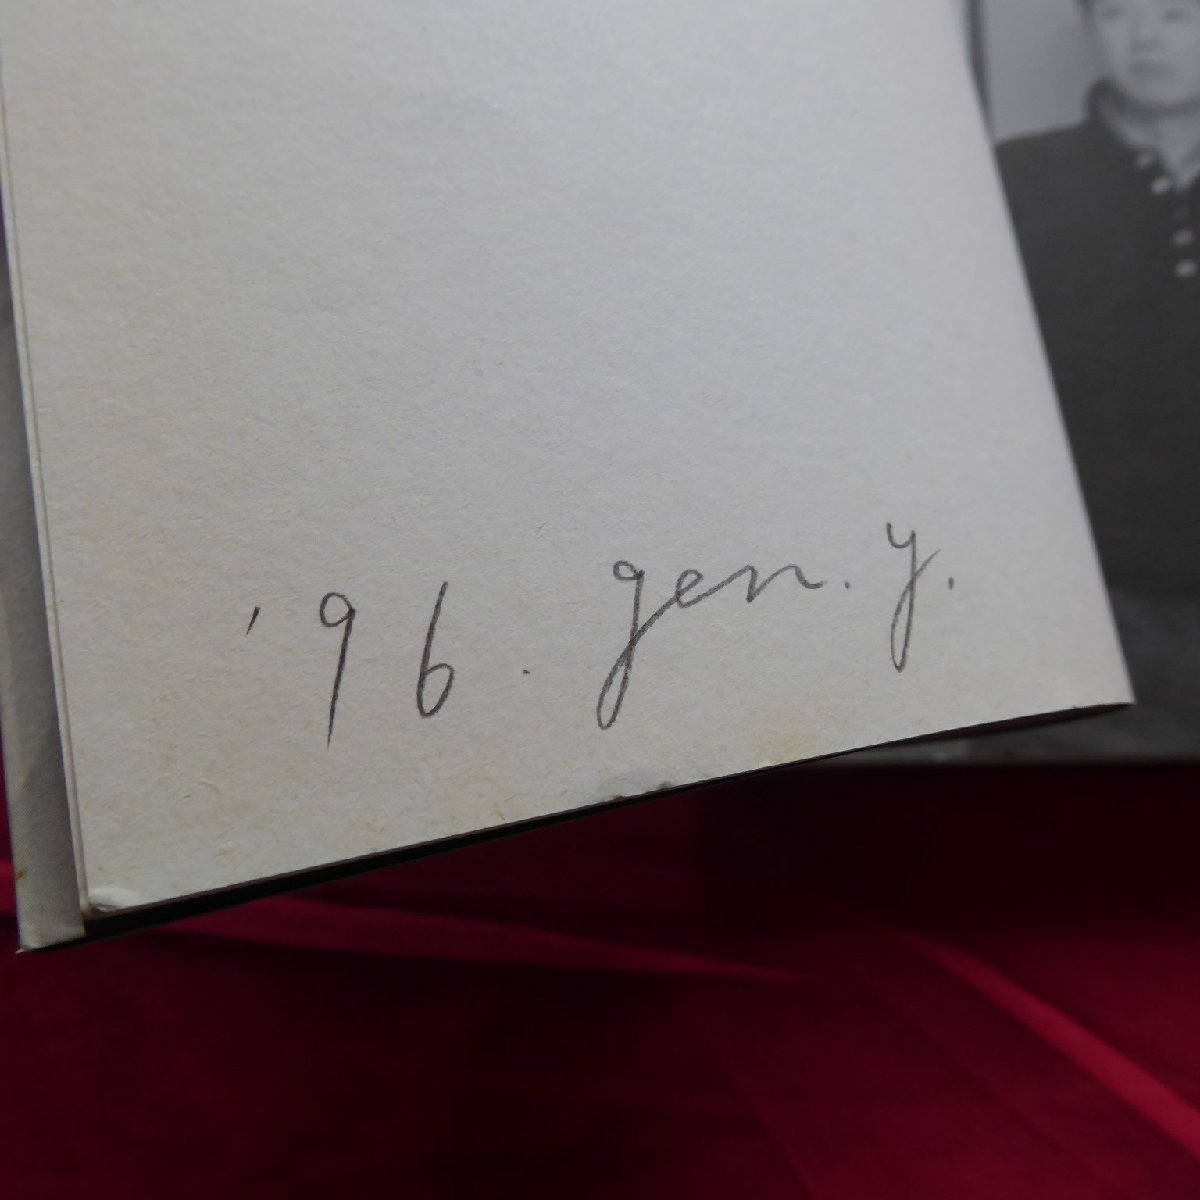 '96. gen. y.